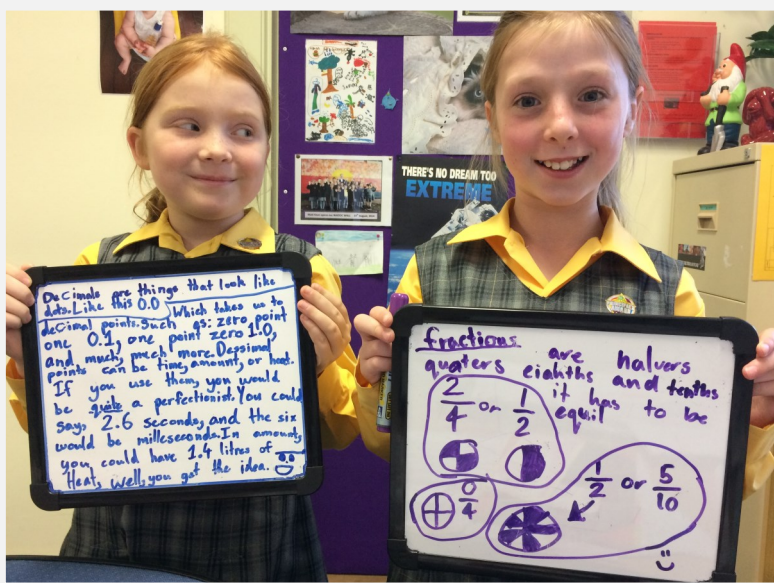 Decimals are things that look like
dots. Like this 0.0 Which takes us to
decimal points. Such as: zero point
one 0.1, one point zero 1.0,
and much, much more. Depsimal
points can be time, amount, or heat.
If you use them, you would
be quite a perfectionist. You could
say, 2.6 seconds, and the six
would be milleseconds. In amounts,
you could have 1.4 litres of
Heat, well, you got the idea.
THERE'S NO DREAM TOO
EXTREME
fractions are halvers
quaters eighths and tenths
it has to be
equil
2/4 or 1/2
0/4
1/2 or 5/10